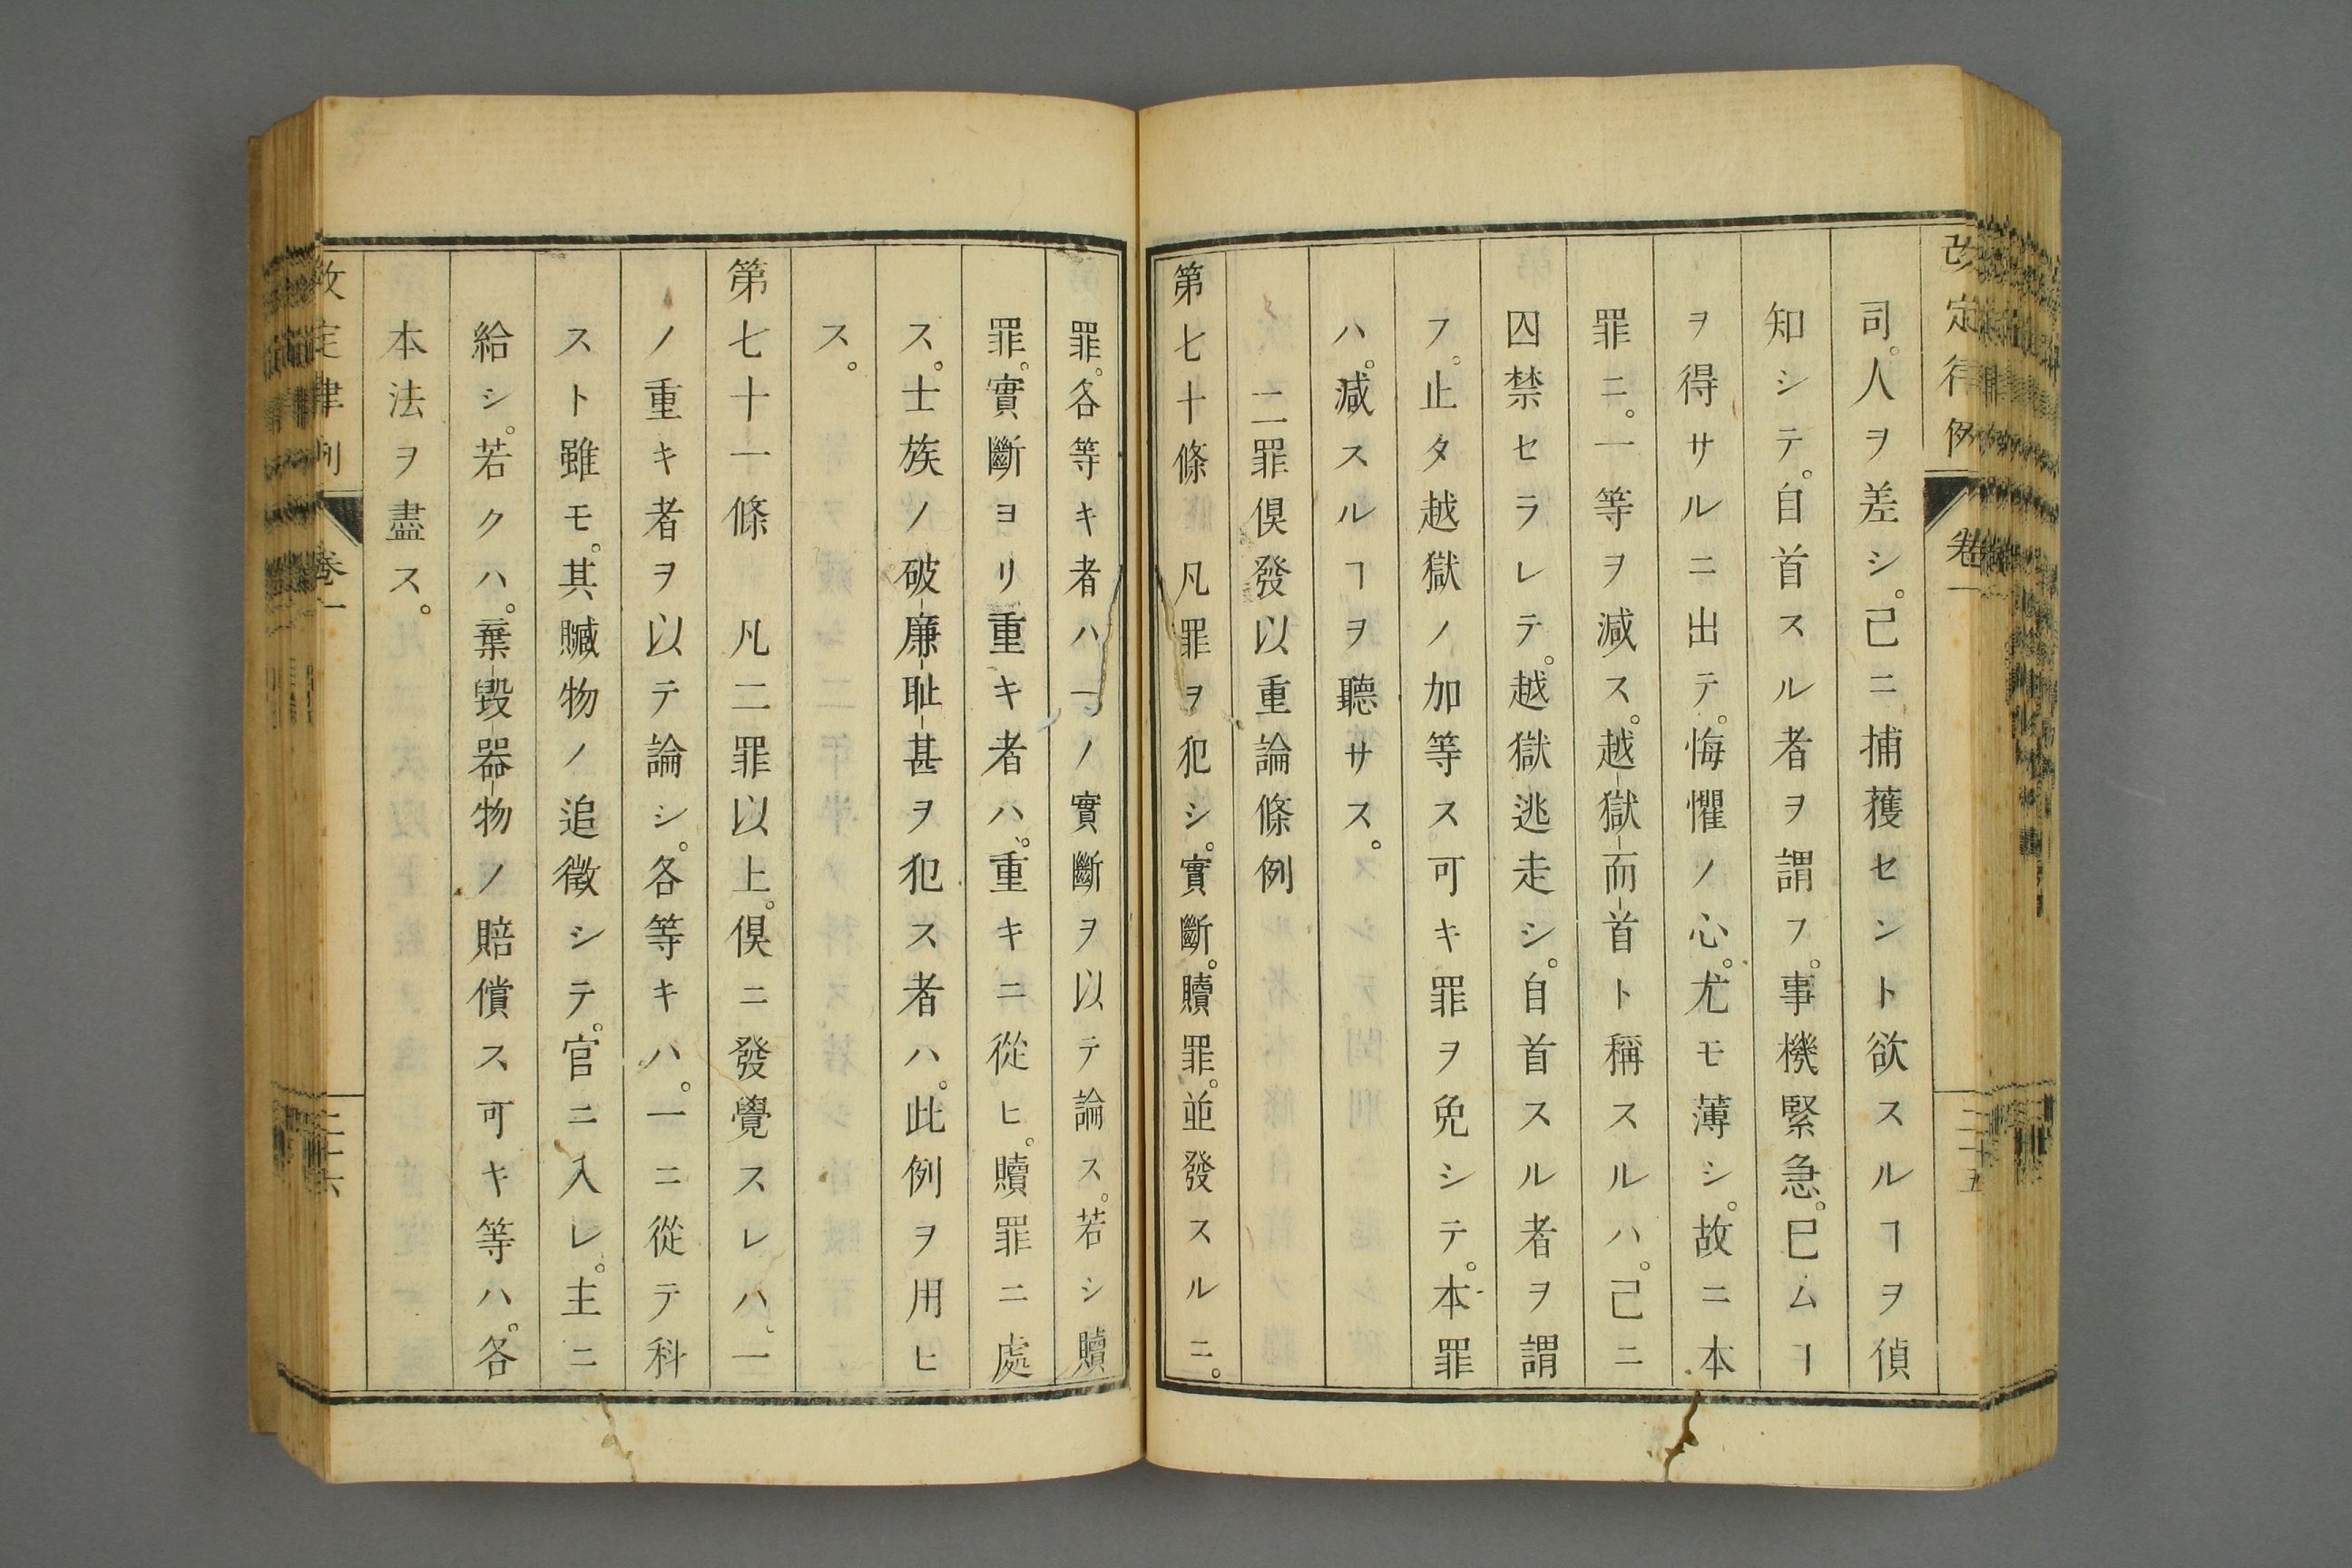 改定律例 卷一 二十五
司。人ヲ差シ。己ニ捕獲セント欲スルヿヲ偵
知シテ。自首スル者ヲ謂フ。事機緊急。已ムヿ
ヲ得サルニ出テ。悔懼ノ心。尤モ薄シ。故ニ本
罪ニ。一等ヲ減ス。越獄而首ト稱スルハ。己ニ
囚禁セラレテ。越獄逃走シ。自首スル者ヲ謂
フ。止タ越獄ノ加等ス可キ罪ヲ免シテ。本罪
ハ。減スルヿヲ聽サス。
二罪俱發以重論條例
第七十條 凡罪ヲ犯シ。實斷。贖罪。並發スルニ。
罪。各等キ者ハ一ノ實斷ヲ以テ論ス。若シ贖
罪。實斷ヨリ重キ者ハ。重キニ從ヒ。贖罪ニ處
ス。士族ノ破廉耻甚ヲ犯ス者ハ。此例ヲ用ヒ
ス。
第七十一條 凡二罪以上。俱ニ發覺スレハ。一
ノ重キ者ヲ以テ論シ。各等キハ。一ニ從テ科
スト雖モ。其贓物ノ追徵シテ。官ニ入レ。主ニ
給シ。若クハ。棄毀器物ノ賠償ス可キ等ハ。各
本法ヲ盡ス。
改定律例 卷一 二十六